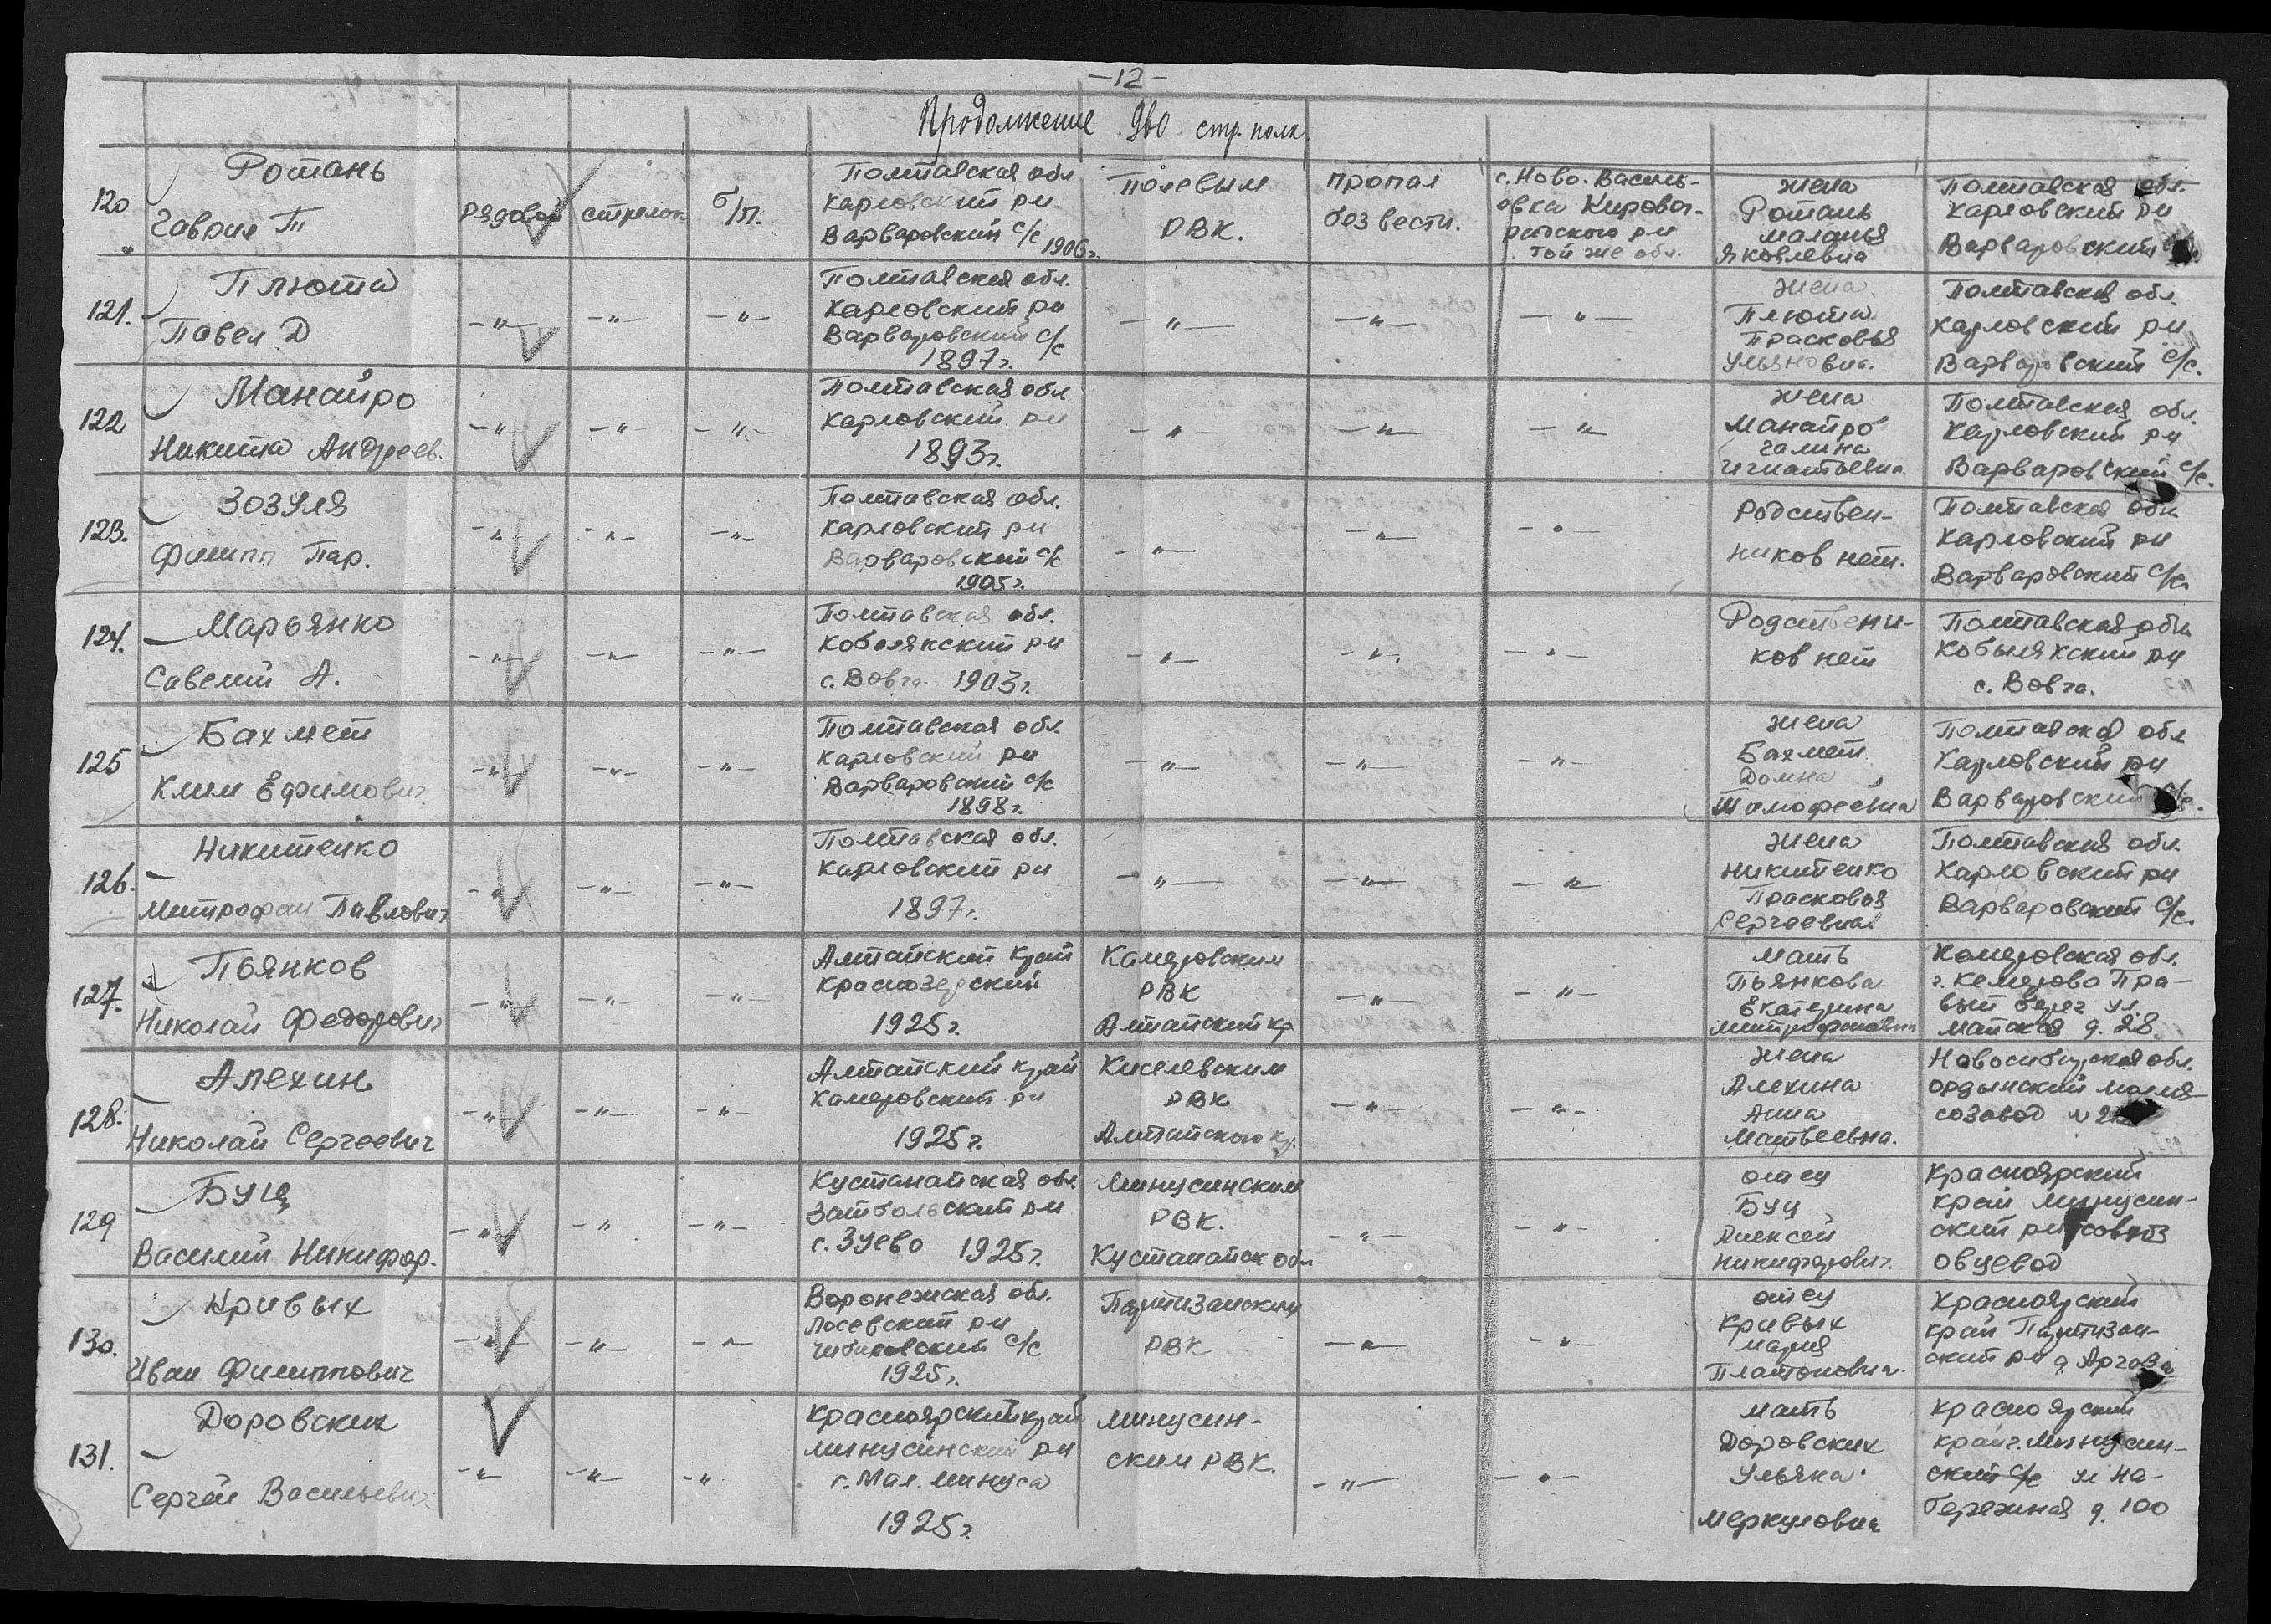 -12-
Продолжение 960 стр. полк.
120
Ротань
Гаврил П
рядовой
стрелок
б/п.
Полтавская обл
Карловский рн
Варваровский с/с
1906г.
Полевым
РВК.
пропал
без вести.
с. Ново-Василь-
евка Кировог-
радского рн
той же обл.
жена
Ротань
Маланья
Яковлевна
Полтавская обл.
Карловский рн
Варваровский
121.
Плюта
Павел Д
-"-
-"-
-"-
Полтавская обл.
Карловский рн
Варваровский с/с
1897г.
-"-
-"-
-"-
жена
Плюта
Прасковья
Ульяновна.
Полтавская обл.
Карловский рн
Варваровский с/с.
122
Манайро
Никита Андреев.
-"-
-"-
-"-
Полтавская обл
Карловский рн
1893г.
-"-
-"-
-"-
жена
Манайро
Галина
Игнатьевна
Полтавская обл.
Карловский рн
Варваровский с/с.
123.
Зозуля
Филипп Пар.
-"-
-"-
-"-
Полтавская обл.
Карловский рн
Варваровский с/с
1905г.
-"-
-"-
-"-
Родствен-
ников нет.
Полтавская обл
Карловский рн
Варваровский с/с
124.
Марьянко
Савелий А.
-"-
-"-
-"-
Полтавская обл.
Кобелякский рн
с. Вовча 1903г.
-"-
-"-
-"-
Родствени-
ков нет
Полтавская обл
Кобылякский рн
с. Вовча.
125
Бахмет
Клим Ефимович
-"-
-"-
-"-
Полтавская обл.
Карловский рн
Варваровский с/с
1898г.
-"-
-"-
-"-
жена
Бахмет
Домна
Тимофеевна
Полтавская обл
Карловский рн
Варваровский с/с.
126.
Никитенко
Митрофан Павлович
-"-
-"-
-"-
Полтавская обл.
Карловский рн
1897г.
-"-
-"-
-"-
жена
Никитенко
Прасковья
Сергеевна
Полтавская обл.
Карловский рн
Варваровский с/с.
127.
Пьянков
Николай Федорович
-"-
-"-
-"-
Алтайский край
Краснозерский
1925г.
Камеровским
РВК
Алтайский кр
-"-
-"-
мать
Пьянкова
Екатерина
Митрофановна
Комеровская обл.
г. Кемерово Пра-
вый берег ул.
Майская д. 28
128.
Алехин
Николай Сергеевич
-"-
-"-
-"-
Алтайский край
Камеровский рн
1925г.
Киселевским
РВК
Алтайского кр.
-"-
-"-
жена
Алехина
Анна
Матвеевна.
Новосибирская обл.
Ордынский масля-
созавод
129
Буц
Василий Никифор.
-"-
-"-
-"-
Кустанайская обл.
Затбольский рн
с. Зуево 1925г.
Минусинским
РВК.
Кустанайск обл
-"-
-"-
отец
Буц
Алексей
Никифорович.
Красноярский
край Минусин-
ский рн совхоз
Овцевод
130.
Кривых
Иван Филиппович
-"-
-"-
-"-
Воронежская обл.
Лосевский рн
с/с
1925г.
Партизанским
РВК
-"-
-"-
отец
Кривых
Мария
Платоновна.
Красноярский
край Партизан-
ский рн д.
131.
Доровских
Сергей Васильевич.
-"-
-"-
-"-
Красноярский край
Минусинский рн
с. Мал. Минуса
1925г.
Минусин-
ским РВК.
-"-
-"-
мать
Доровских
Ульяна
Меркуловна
Красноярский
край г. Минусин-
ский с/с ул На-
бережная д. 100